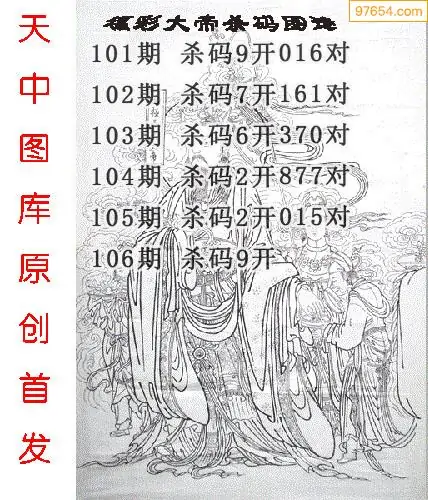 97654.com
福彩大帝杀码图迷
101期 杀码9开016对
102期 杀码7开161对
103期 杀码6开370对
104期 杀码2开877对
105期 杀码2开015对
106期 杀码9开
天中图库原创首发